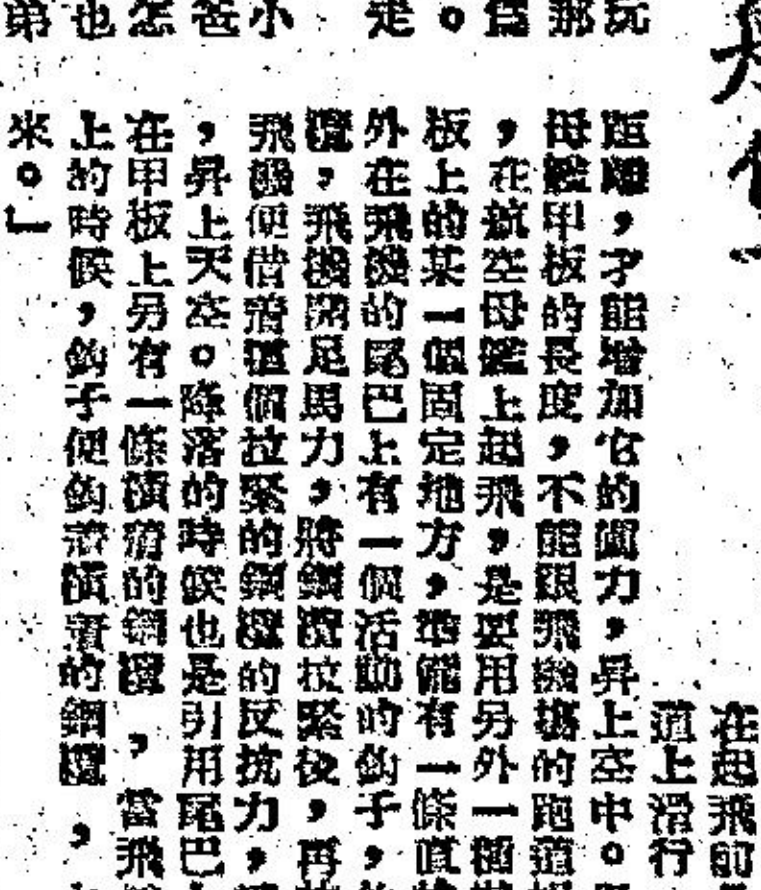 在起飛前
道上滑行
距離，才能增加它的衝力，昇上空中。
母艦甲板的長度，不能跟飛機場的跑道
，在航空母艦上起飛，是要用另外一種
板上的某一個固定地方，準備有一條直
外在飛機的尾巴上有一個活動的鈎子，
纜，飛機開足馬力，將鋼纜拉緊後，再
飛機便借着這個拉緊的鋼纜的反抗力，
，昇上天空。降落的時候也是引用尾巴
在甲板上另有一條橫着的鋼纜，當飛
上的時候，鈎子便鈎着橫着的鋼纜，
來。」
玩
那
。為
走
小
爸
怎
也
弟